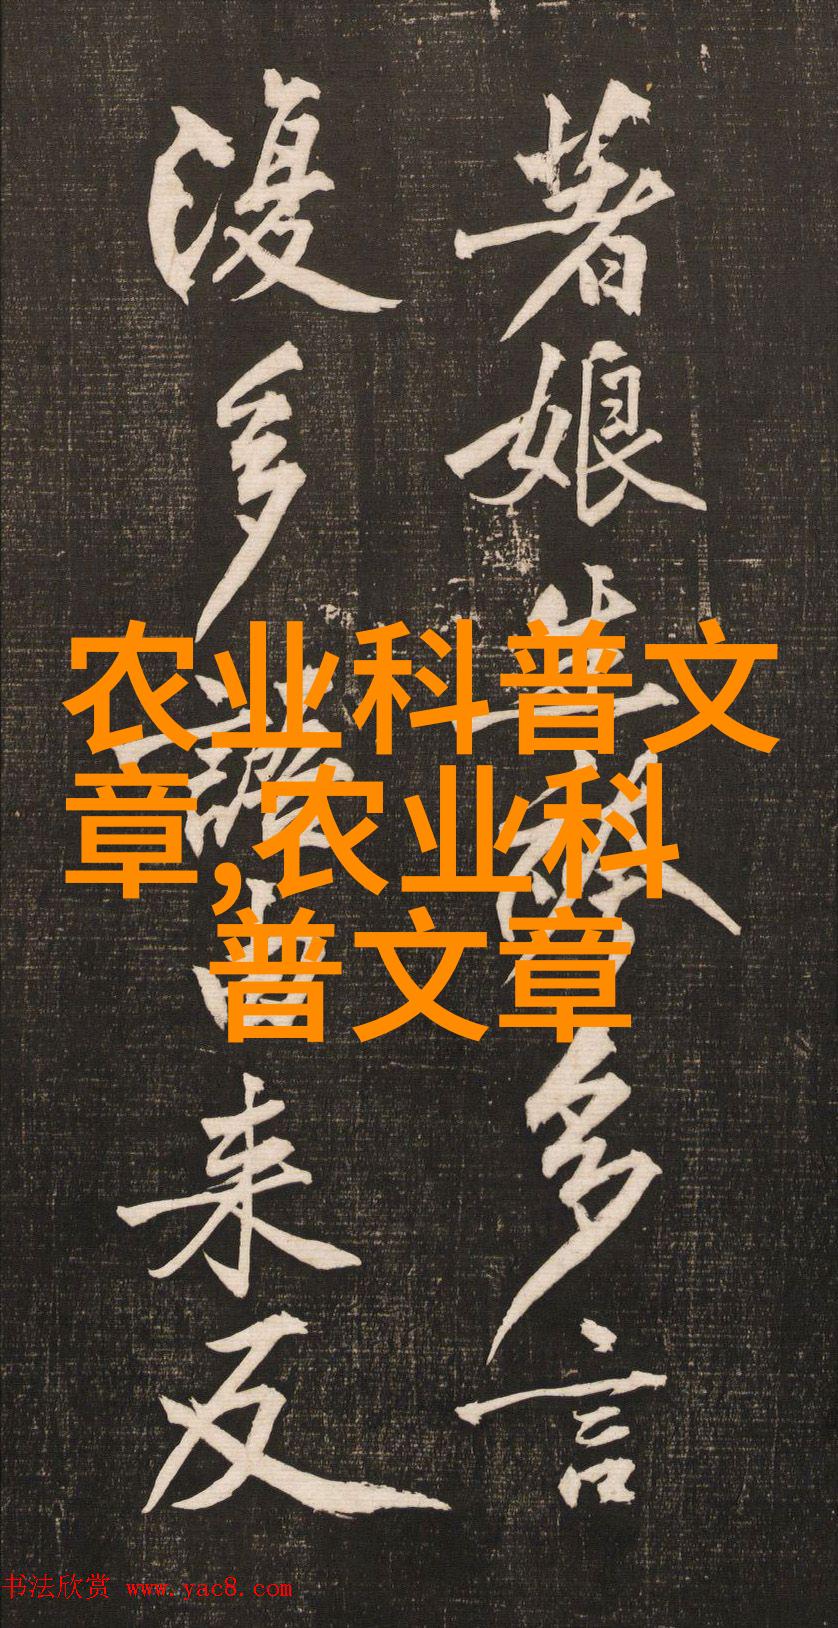 著娘無恙多言
復多謠由来反
农业科普文
章,农业科
普文章
书法欣赏 www.yac8.com